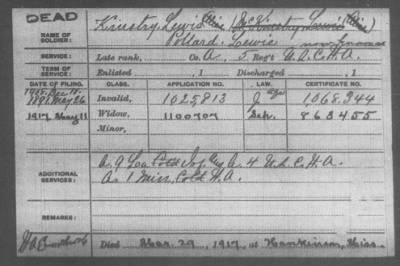 DEAD
NAME OF SOLDIER: Kinstry, Lewis
Pollard, Lewis
SERVICE: Late rank, Co. A, 5 Reg't U.S.C.H.A.
TERM OF SERVICE: Enlisted , 1 Discharged , 1
DATE OF FILING. CLASS. APPLICATION NO. LAW. CERTIFICATE NO.
1891 May 26 Invalid, 1025813 1068344
1917 May 11 Widow, 1100707 863455
Minor,
ADDITIONAL SERVICES: A. 9 La Cold Inf. A. 4 U.S.C.H.A.
A. 1 Miss. Cold H.A.
REMARKS:
Died Mar. 29, 1917, at Hankinson, Miss.